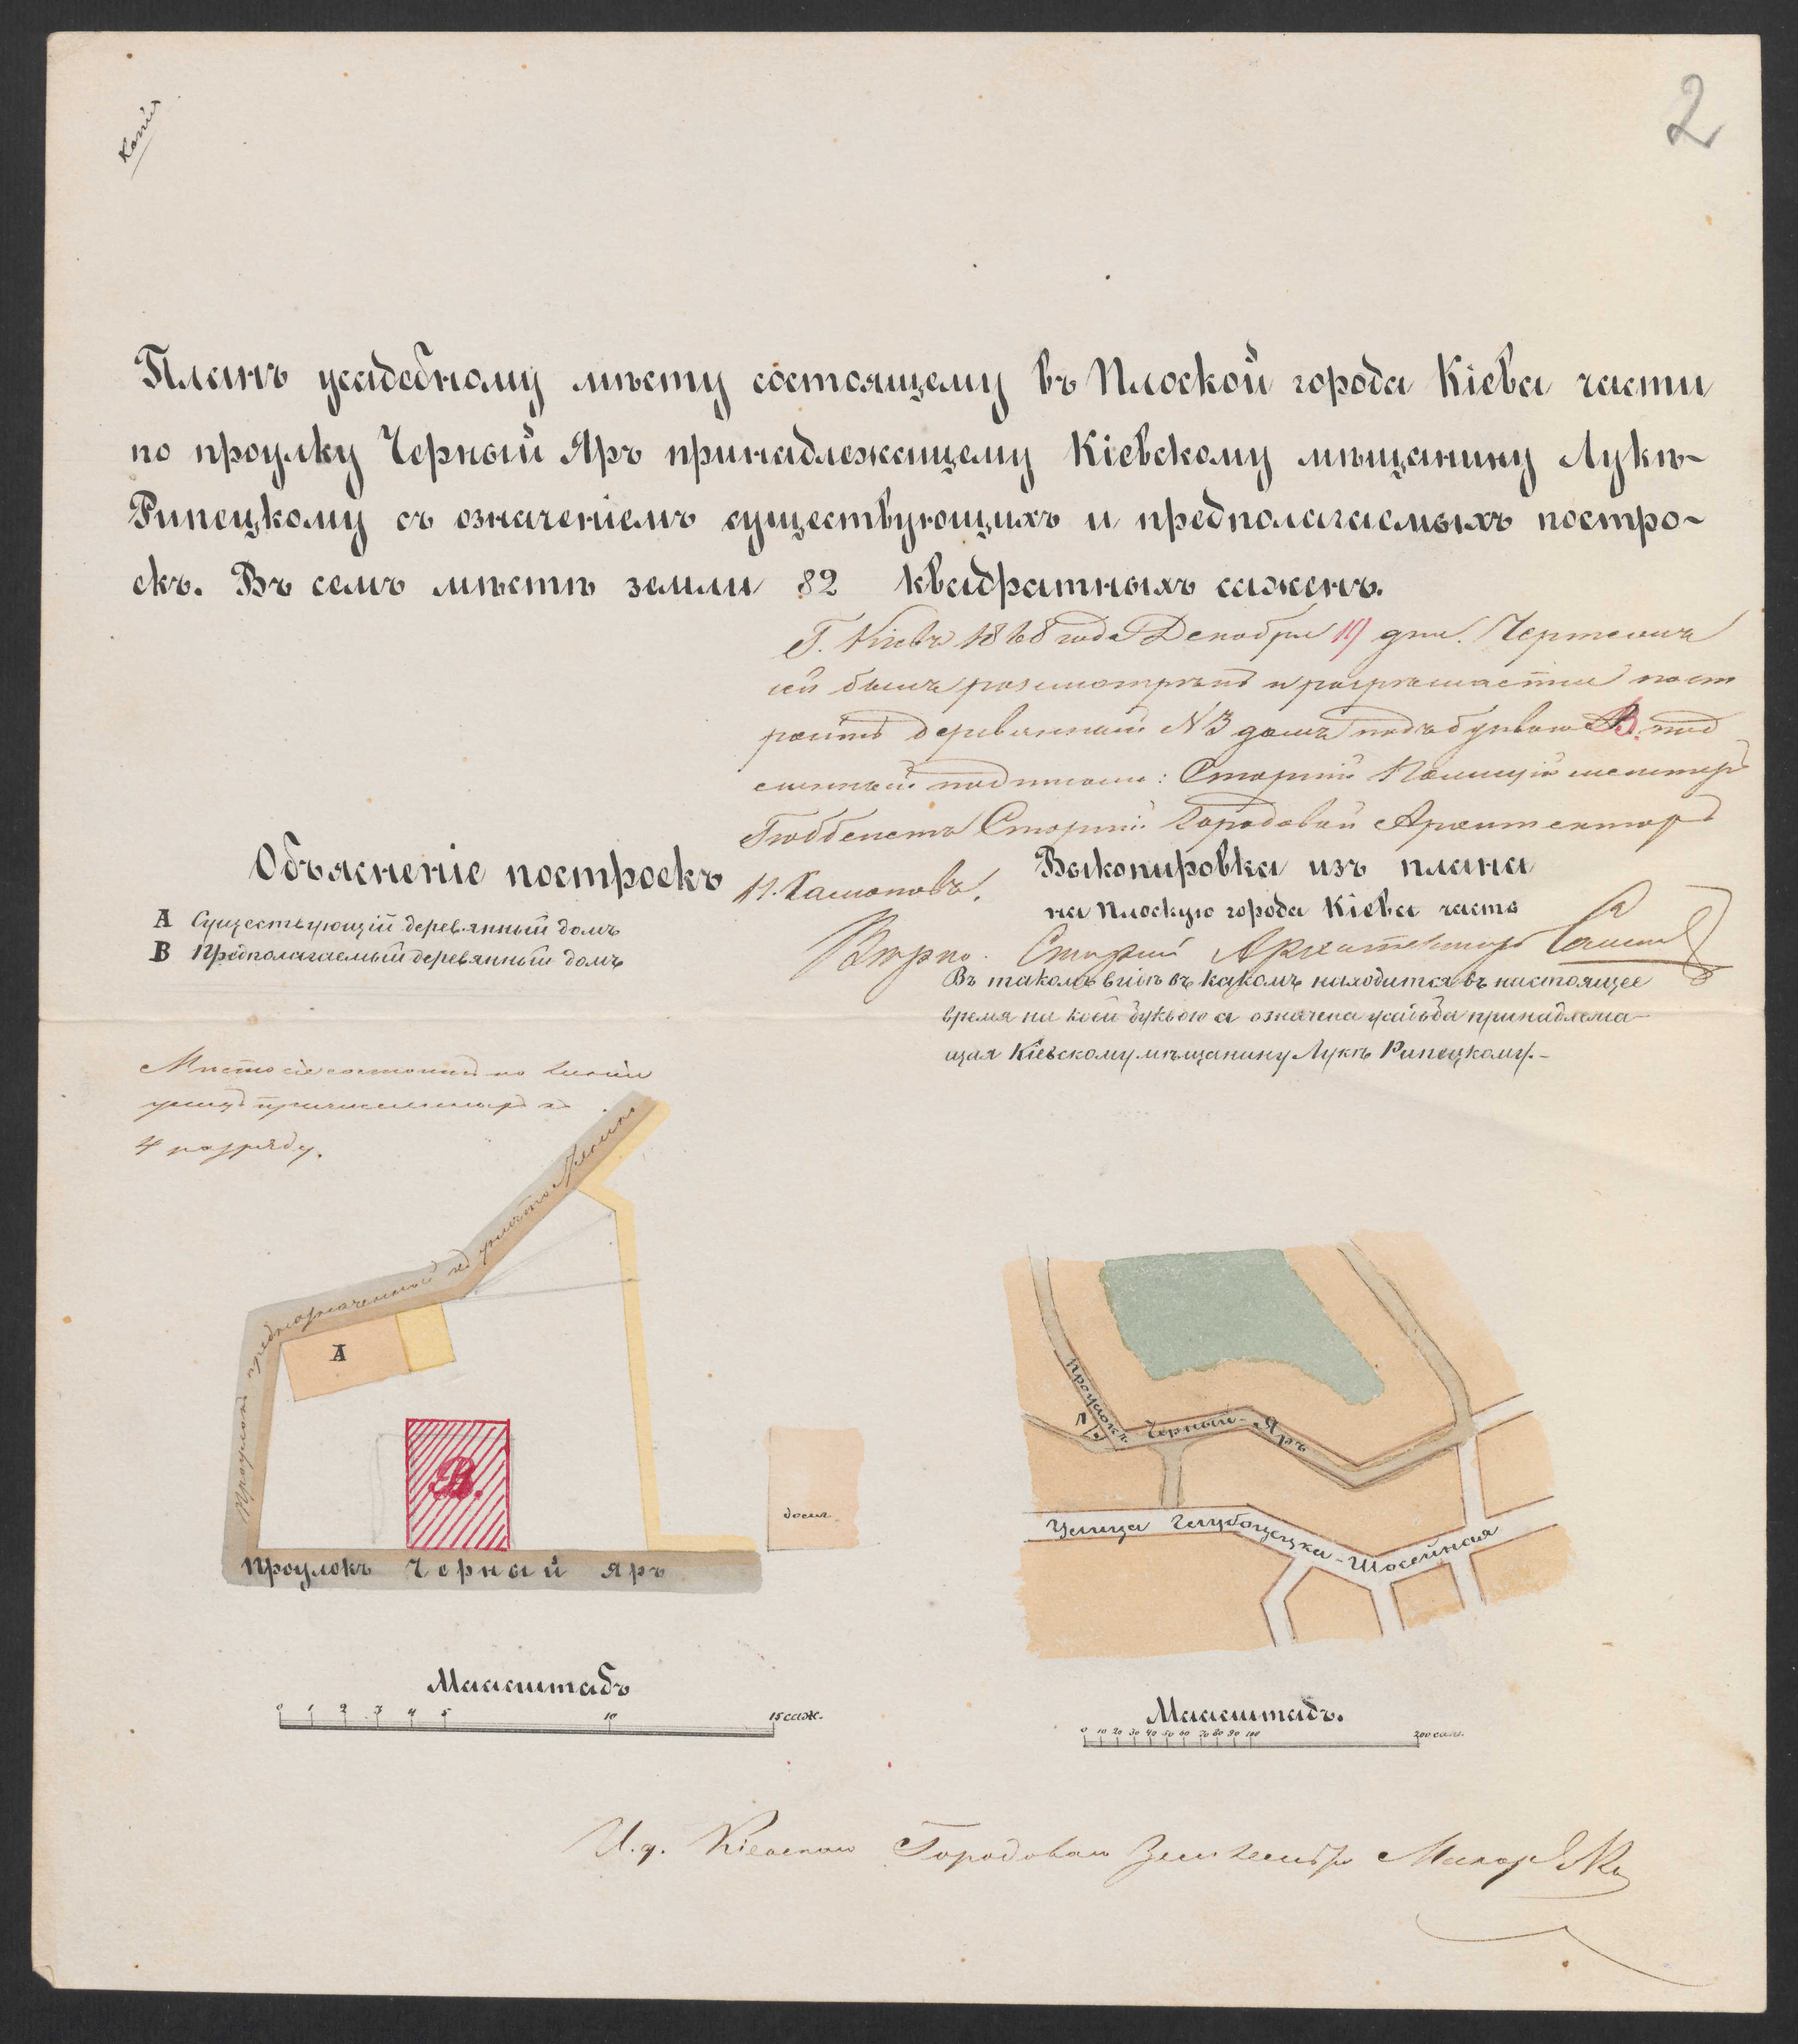 Копія
2
Планъ усадебному мѣсту состоящему въ Плоской города Кіева части
по проулку Черный Яръ принадлежащему Кіевскому мѣщанину Лукѣ-
Рипецкому съ означеніемъ существующихъ и предполагаемыхъ постро-
екъ. Въ семъ мѣстѣ земли 82 квадратныхъ сажень.
Г. Кіевъ 1868 года Декабря 19 дня. Чертежъ
сей былъ разсмотрѣнъ и разрѣшается пост
роить деревянный N 3 домъ подъ буквою В. под
линный подписали: Старшій Полицiймейстеръ
Гюббенетъ Старшій Городовой Архитекторъ
Объясненіе построекъ
А Существующій деревянный домъ
В Предполагаемый деревянный домъ
Выкопировка изъ плана
на Плоскую города Кіева часть
Вѣрно. Старший Архитекторъ
Въ такомъ видѣ въ какомъ находится въ настоящее
время на коей буквою а означена усадьба принадлежа-
щая Кіевскому мѣщанину Лукѣ Рипецкому.-
Мѣсто сіе состоитъ по линіи
улицъ причисленныхъ къ
4 разряду.
Проулокъ предназначенный къ уничтоженію
А
В.
домъ
Проулокъ Черный яръ
Проулокъ
Черный-Яръ
Улица Глубочецка-Шосейная
Маасштабъ
0 1 2 3 4 5 10 15 саж.
Маасштабъ.
0 10 20 30 40 50 60 70 80 90 100 200 саж.
И. д. Кіевскаго Городоваго Землемѣра